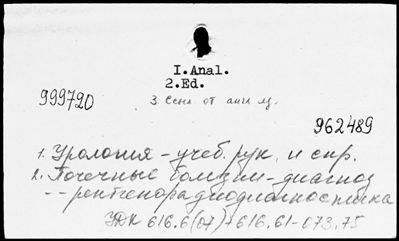 I.Anal.
2.Ed.
999720
3. Ссыл от англ яз.
962489
1. Урология - учеб. рук. и спр.
2. Почечные болезни - диагноз
-- рентгенорадиодиагностика
УДК 616.6(07)+616.61-073.75